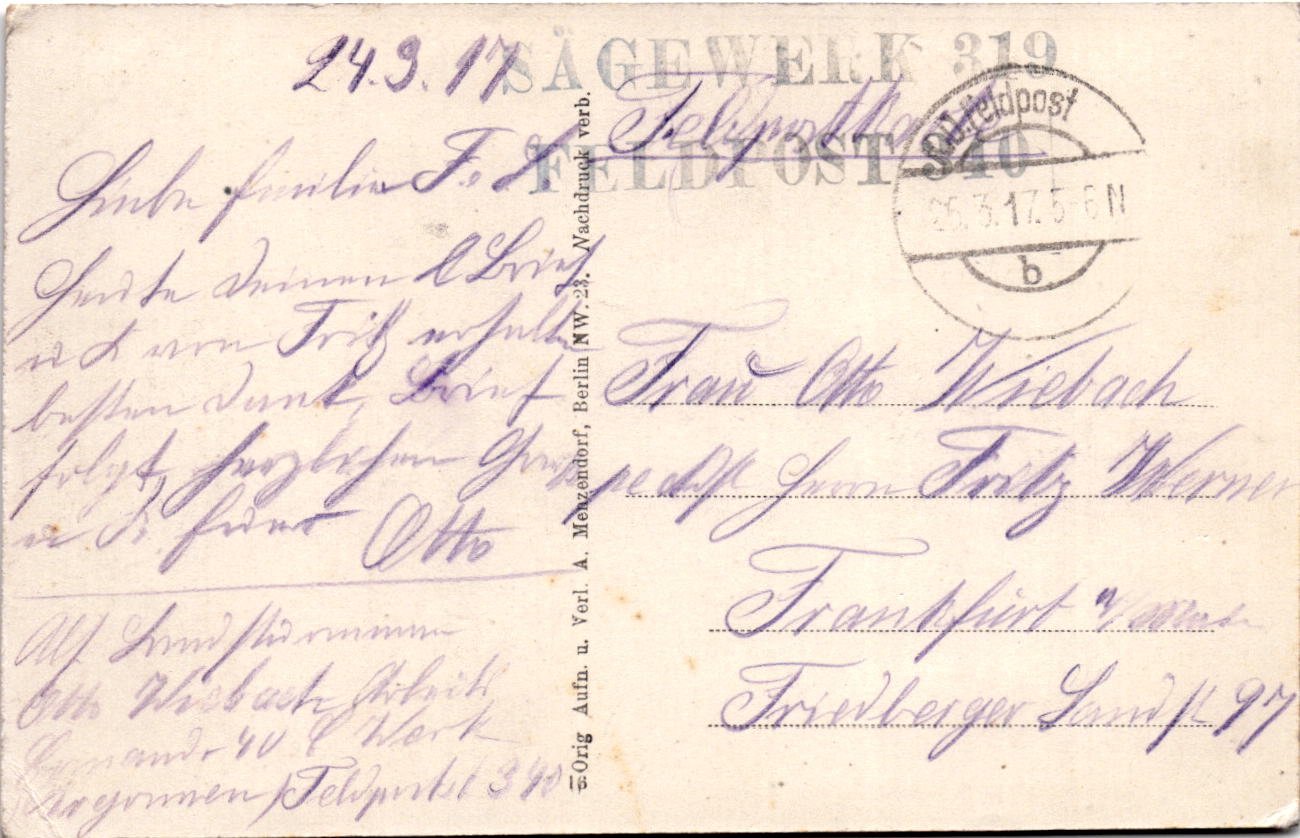 24.3.17
Liebe Familie F. L.
Heute deinen l Brief
u von Fritz erhalten
besten Dank, Brief
folgt, herzlichen Gruss
Otto
Abs Landsturmmann
Otto Wiebach Arbeits
Comando 40 E Werk
Argonnen / Feldpost 340
SÄGEWERK 319
FELDPOST 340
Feldpostkarte
Feldpost
26.3.17.5-6N
b
Orig Aufn. u. Verl. A. Menzendorf, Berlin NW. 23. Nachdruck verb.
Frau Otto Wiebach
Herrn Fritz Werner
Frankfurt a/Main
Friedberger Landst 97